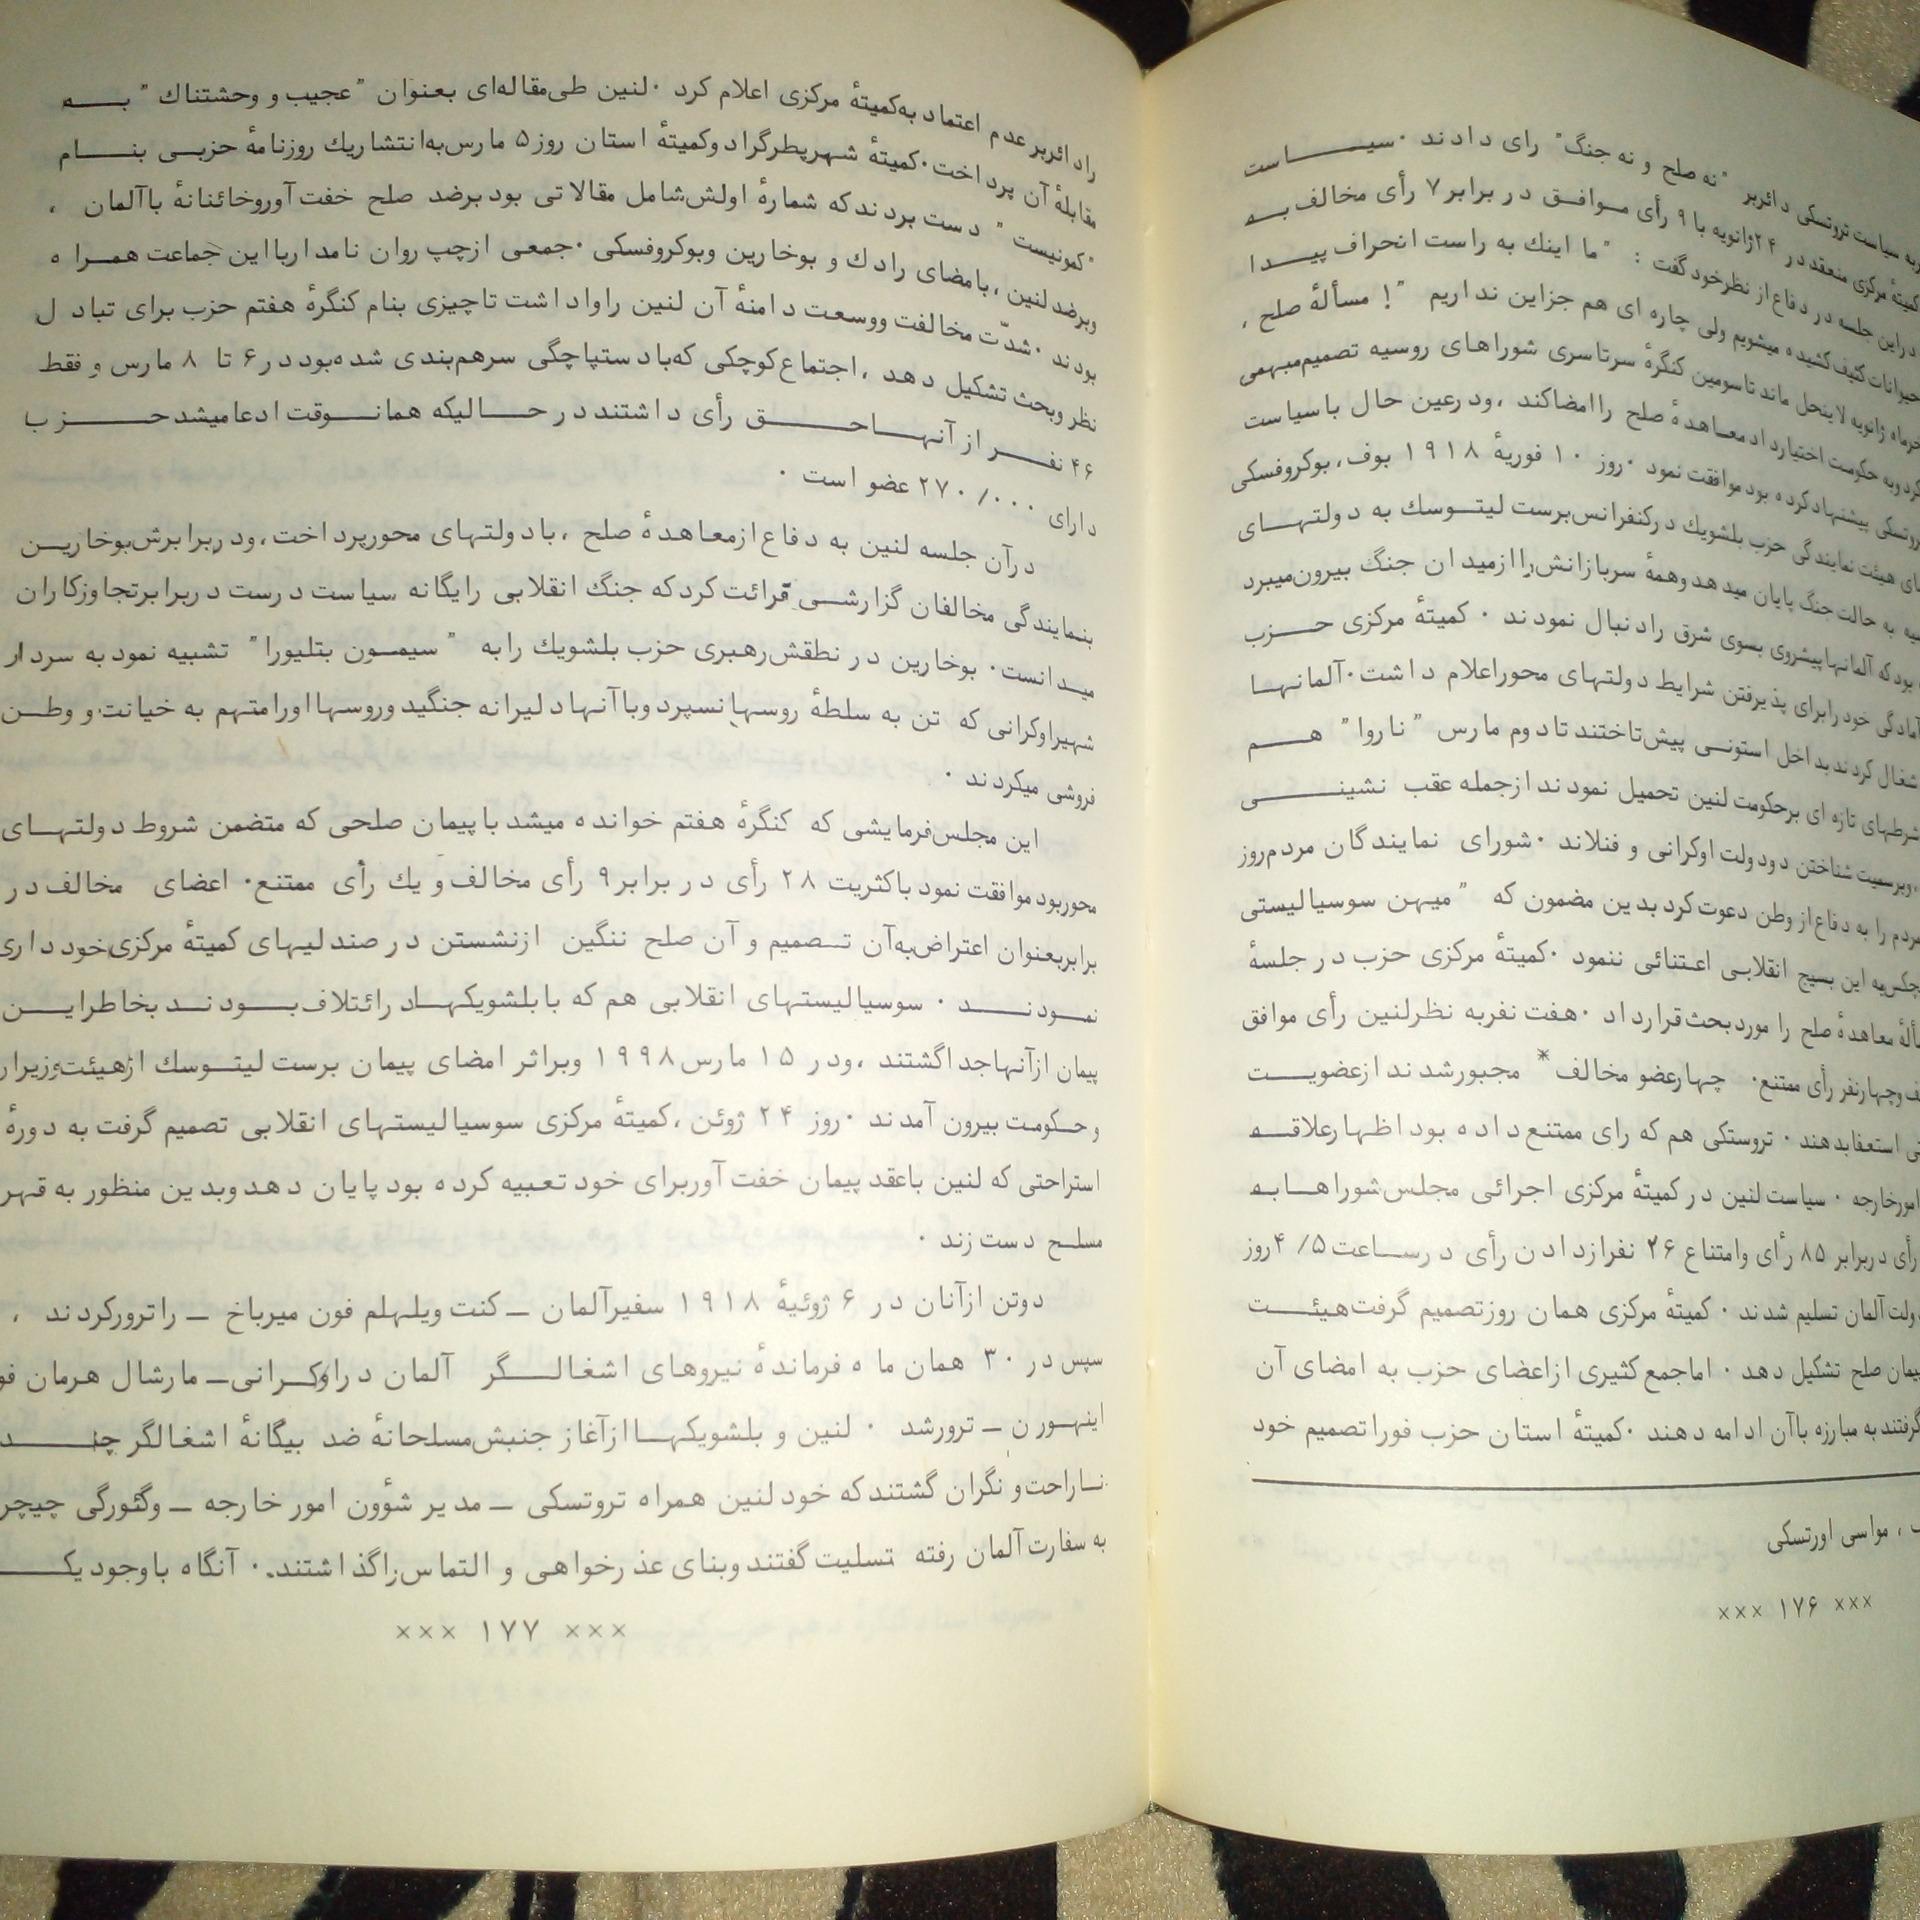 به سیاست تروتسکی دائربر "نه صلح و نه جنگ" رای دادند ۰ سیاست
کمیتهٔ مرکزی منعقد در ۲۴ ژانویه با ۹ رأی موافق در برابر ۷ رأی مخالف به
دراین جلسه در دفاع از نظرخود گفت : "ما اینك به راست انحراف پیدا
حیوانات کثیف کشیده میشویم ولی چاره ای هم جزاین نداریم "! مسألهٔ صلح ،
خرماه ژانویه لاینحل ماند تا سومین کنگرهٔ سرتاسری شوراهای روسیه تصمیم مبهمی
کرد وبه حکومت اختیار داد معاهدهٔ صلح را امضاکند ، ودرعین حال با سیاست
تروتسکی پیشنهاد کرده بود موافقت نمود ۰ روز ۱۰ فوریهٔ ۱۹۱۸ بوف، بوکروفسکی
ای هیئت نمایندگی حزب بلشویك درکنفرانس برست لیتوسك به دولتهای
یه به حالت جنگ پایان میدهد وهمهٔ سربازانش را ازمیدان جنگ بیرون میبرد
بود که آلمانها پیشروی بسوی شرق را دنبال نمودند ۰ کمیتهٔ مرکزی حزب
آمادگی خود را برای پذیرفتن شرایط دولتهای محور اعلام داشت ۰ آلمانها
شغال کردند بداخل استونی پیش تاختند تا دوم مارس "ناروا" هم
شرطهای تازه ای برحکومت لنین تحمیل نمودند ازجمله عقب نشینی
، وبرسمیت شناختن دودولت اوکرانی و فنلاند ۰ شورای نمایندگان مردم روز
مردم را به دفاع از وطن دعوت کرد بدین مضمون که "میهن سوسیالیستی
چکس به این بسیج انقلابی اعتنائی ننمود ۰ کمیتهٔ مرکزی حزب در جلسهٔ
ألهٔ معاهدهٔ صلح را مورد بحث قرارداد ۰ هفت نفر به نظر لنین رأی موافق
ف وچهارنفر رأی ممتنع ۰ چهارعضو مخالف* مجبور شدند ازعضویت
ی استعفا بدهند ۰ تروستکی هم که رای ممتنع داده بود اظهارعلاقه
امورخارجه ۰ سیاست لنین در کمیتهٔ مرکزی اجرائی مجلس شوراها به
رأی دربرابر ۸۵ رأی وامتناع ۲۶ نفر از دادن رأی در ساعت ۴/۵ روز
ولت آلمان تسلیم شدند ۰ کمیتهٔ مرکزی همان روز تصمیم گرفت هیئت
پیمان صلح تشکیل دهد ۰ اما جمع کثیری ازاعضای حزب به امضای آن
گرفتند به مبارزه باآن ادامه دهند ۰ کمیتهٔ استان حزب فورا تصمیم خود
، مواسی اورتسکی
××× ۱۷۶ ×××
را دائربر عدم اعتماد به کمیتهٔ مرکزی اعلام کرد ۰ لنین طی مقاله ای بعنوان "عجیب و وحشتناك" به
مقابلهٔ آن پرداخت ۰ کمیتهٔ شهر پطرگراد وکمیتهٔ استان روز ۵ مارس به انتشاریك روزنامهٔ حزبی بنام
"کمونیست" دست بردند که شمارهٔ اولش شامل مقالاتی بود برضد صلح خفت آور وخائنانهٔ باآلمان ،
وبرضد لنین ، بامضای رادك و بوخارین وبوکروفسکی ۰ جمعی ازچپ روان نامدار بااین جماعت همراه
بودند ۰ شدّت مخالفت ووسعت دامنهٔ آن لنین را واداشت تاچیزی بنام کنگرهٔ هفتم حزب برای تبادل
نظر وبحث تشکیل دهد ، اجتماع کوچکی که با دستپاچگی سرهم بندی شده بود در ۶ تا ۸ مارس و فقط
۴۶ نفر از آنها حق رأی داشتند در حالیکه همانوقت ادعا میشد حزب
دارای ۲۷۰/۰۰۰ عضو است ۰
درآن جلسه لنین به دفاع ازمعاهدهٔ صلح ، با دولتهای محور پرداخت ، ودر برابرش بوخارین
بنمایندگی مخالفان گزارشی قرائت کرد که جنگ انقلابی را یگانه سیاست درست دربرابر تجاوزکاران
میدانست ۰ بوخارین در نطقش رهبری حزب بلشویك را به "سیمون بتلیورا" تشبیه نمود به سردار
شهیر اوکرانی که تن به سلطهٔ روسها نسپرد وباآنها دلیرانه جنگید وروسها اورا متهم به خیانت و وطن
فروشی میکردند ۰
این مجلس فرمایشی که کنگرهٔ هفتم خوانده میشد باپیمان صلحی که متضمن شروط دولتهای
محور بود موافقت نمود باکثریت ۲۸ رأی در برابر ۹ رأی مخالف و یك رأی ممتنع ۰ اعضای مخالف در
برابر بعنوان اعتراض به آن تصمیم و آن صلح ننگین ازنشستن در صندلیهای کمیتهٔ مرکزی خودداری
نمودند ۰ سوسیالیستهای انقلابی هم که با بلشویکها در ائتلاف بودند بخاطراین
پیمان ازآنها جدا گشتند ، ودر ۱۵ مارس ۱۹۹۸ وبراثر امضای پیمان برست لیتوسك ازهیئت وزیران
وحکومت بیرون آمدند ۰ روز ۲۴ ژوئن ، کمیتهٔ مرکزی سوسیالیستهای انقلابی تصمیم گرفت به دورهٔ
استراحتی که لنین باعقد پیمان خفت آور برای خود تعبیه کرده بود پایان دهد وبدین منظور به قهر
مسلح دست زند ۰
دوتن ازآنان در ۶ ژوئیهٔ ۱۹۱۸ سفیرآلمان ــ کنت ویلهلم فون میرباخ ــ را ترور کردند ،
سپس در ۳۰ همان ماه فرماندهٔ نیروهای اشغالگر آلمان دراوکرانی ــ مارشال هرمان فو
اینهورن ــ ترور شد ۰ لنین و بلشویکها ازآغاز جنبش مسلحانهٔ ضد بیگانهٔ اشغالگر چند
ناراحت و نگران گشتند که خود لنین همراه تروتسکی ــ مدیر شؤون امور خارجه ــ وگئورگی چیچر
به سفارت آلمان رفته تسلیت گفتند وبنای عذرخواهی و التماس را گذاشتند ۰ آنگاه باوجود یک
××× ۱۷۷ ×××